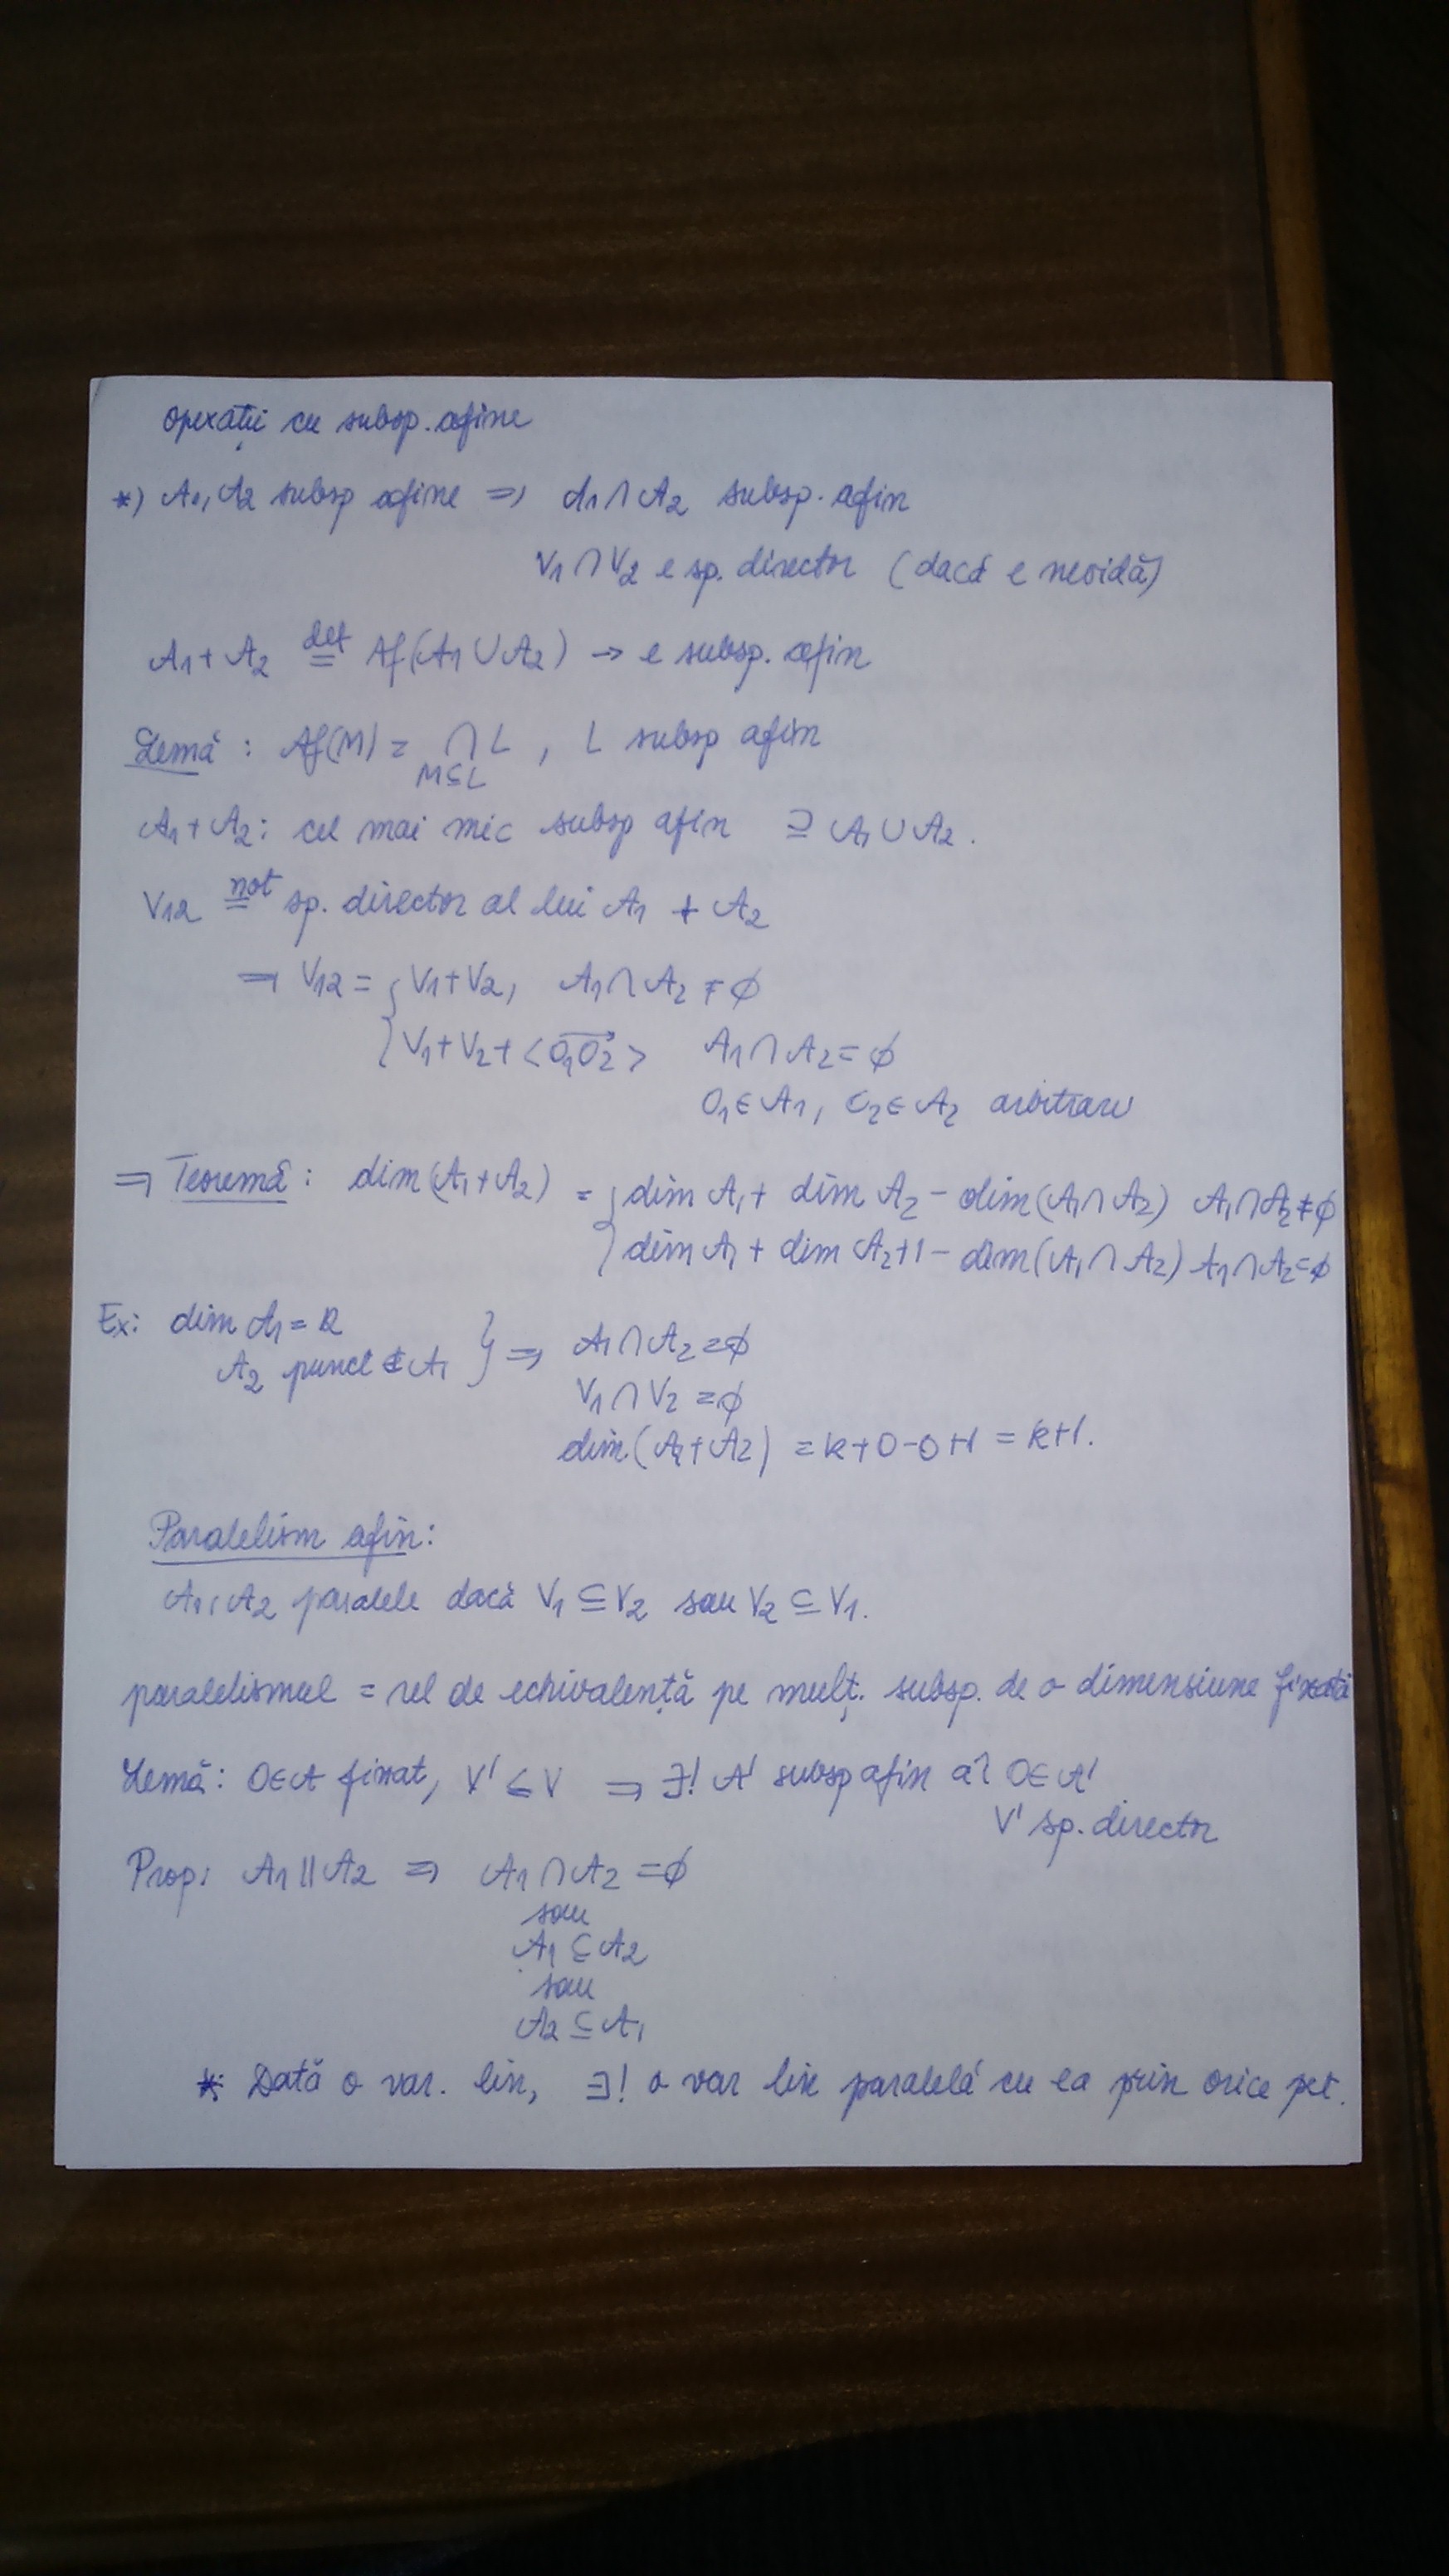 Operații cu subsp. afine
*) A1, A2 subsp afine ⇒ A1 ∩ A2 subsp. afin
V1 ∩ V2 e sp. director (dacă e nevidă)
A1 + A2 def= Af(A1 ∪ A2) → e subsp. afin
Lemă : Af(M) = ∩ L , L subsp afin
M⊆L
A1 + A2 : cel mai mic subsp afin ⊇ A1 ∪ A2 .
V12 not= sp. director al lui A1 + A2
⇒ V12 = { V1 + V2 , A1 ∩ A2 ≠ ∅
V1 + V2 + <O1O2> A1 ∩ A2 = ∅
O1 ∈ A1 , O2 ∈ A2 arbitrare
⇒ Teoremă : dim (A1 + A2) = { dim A1 + dim A2 - dim (A1 ∩ A2) A1 ∩ A2 ≠ ∅
dim A1 + dim A2 + 1 - dim (A1 ∩ A2) A1 ∩ A2 = ∅
Ex: dim A1 = k
A2 punct ∉ A1 } ⇒ A1 ∩ A2 = ∅
V1 ∩ V2 = ∅
dim. (A1 + A2) = k + 0 - 0 + 1 = k + 1.
Paralelism afin :
A1, A2 paralele dacă V1 ⊆ V2 sau V2 ⊆ V1.
paralelismul = rel de echivalență pe mulț. subsp. de o dimensiune fixată
Lemă : O ∈ A fixat, V' ⊆ V ⇒ ∃! A' subsp afin aî O ∈ A'
V' sp. director
Prop: A1 || A2 ⇒ A1 ∩ A2 = ∅
sau
A1 ⊆ A2
sau
A2 ⊆ A1
*: Dată o var. lin, ∃! o var lin paralelă cu ea prin orice pct.